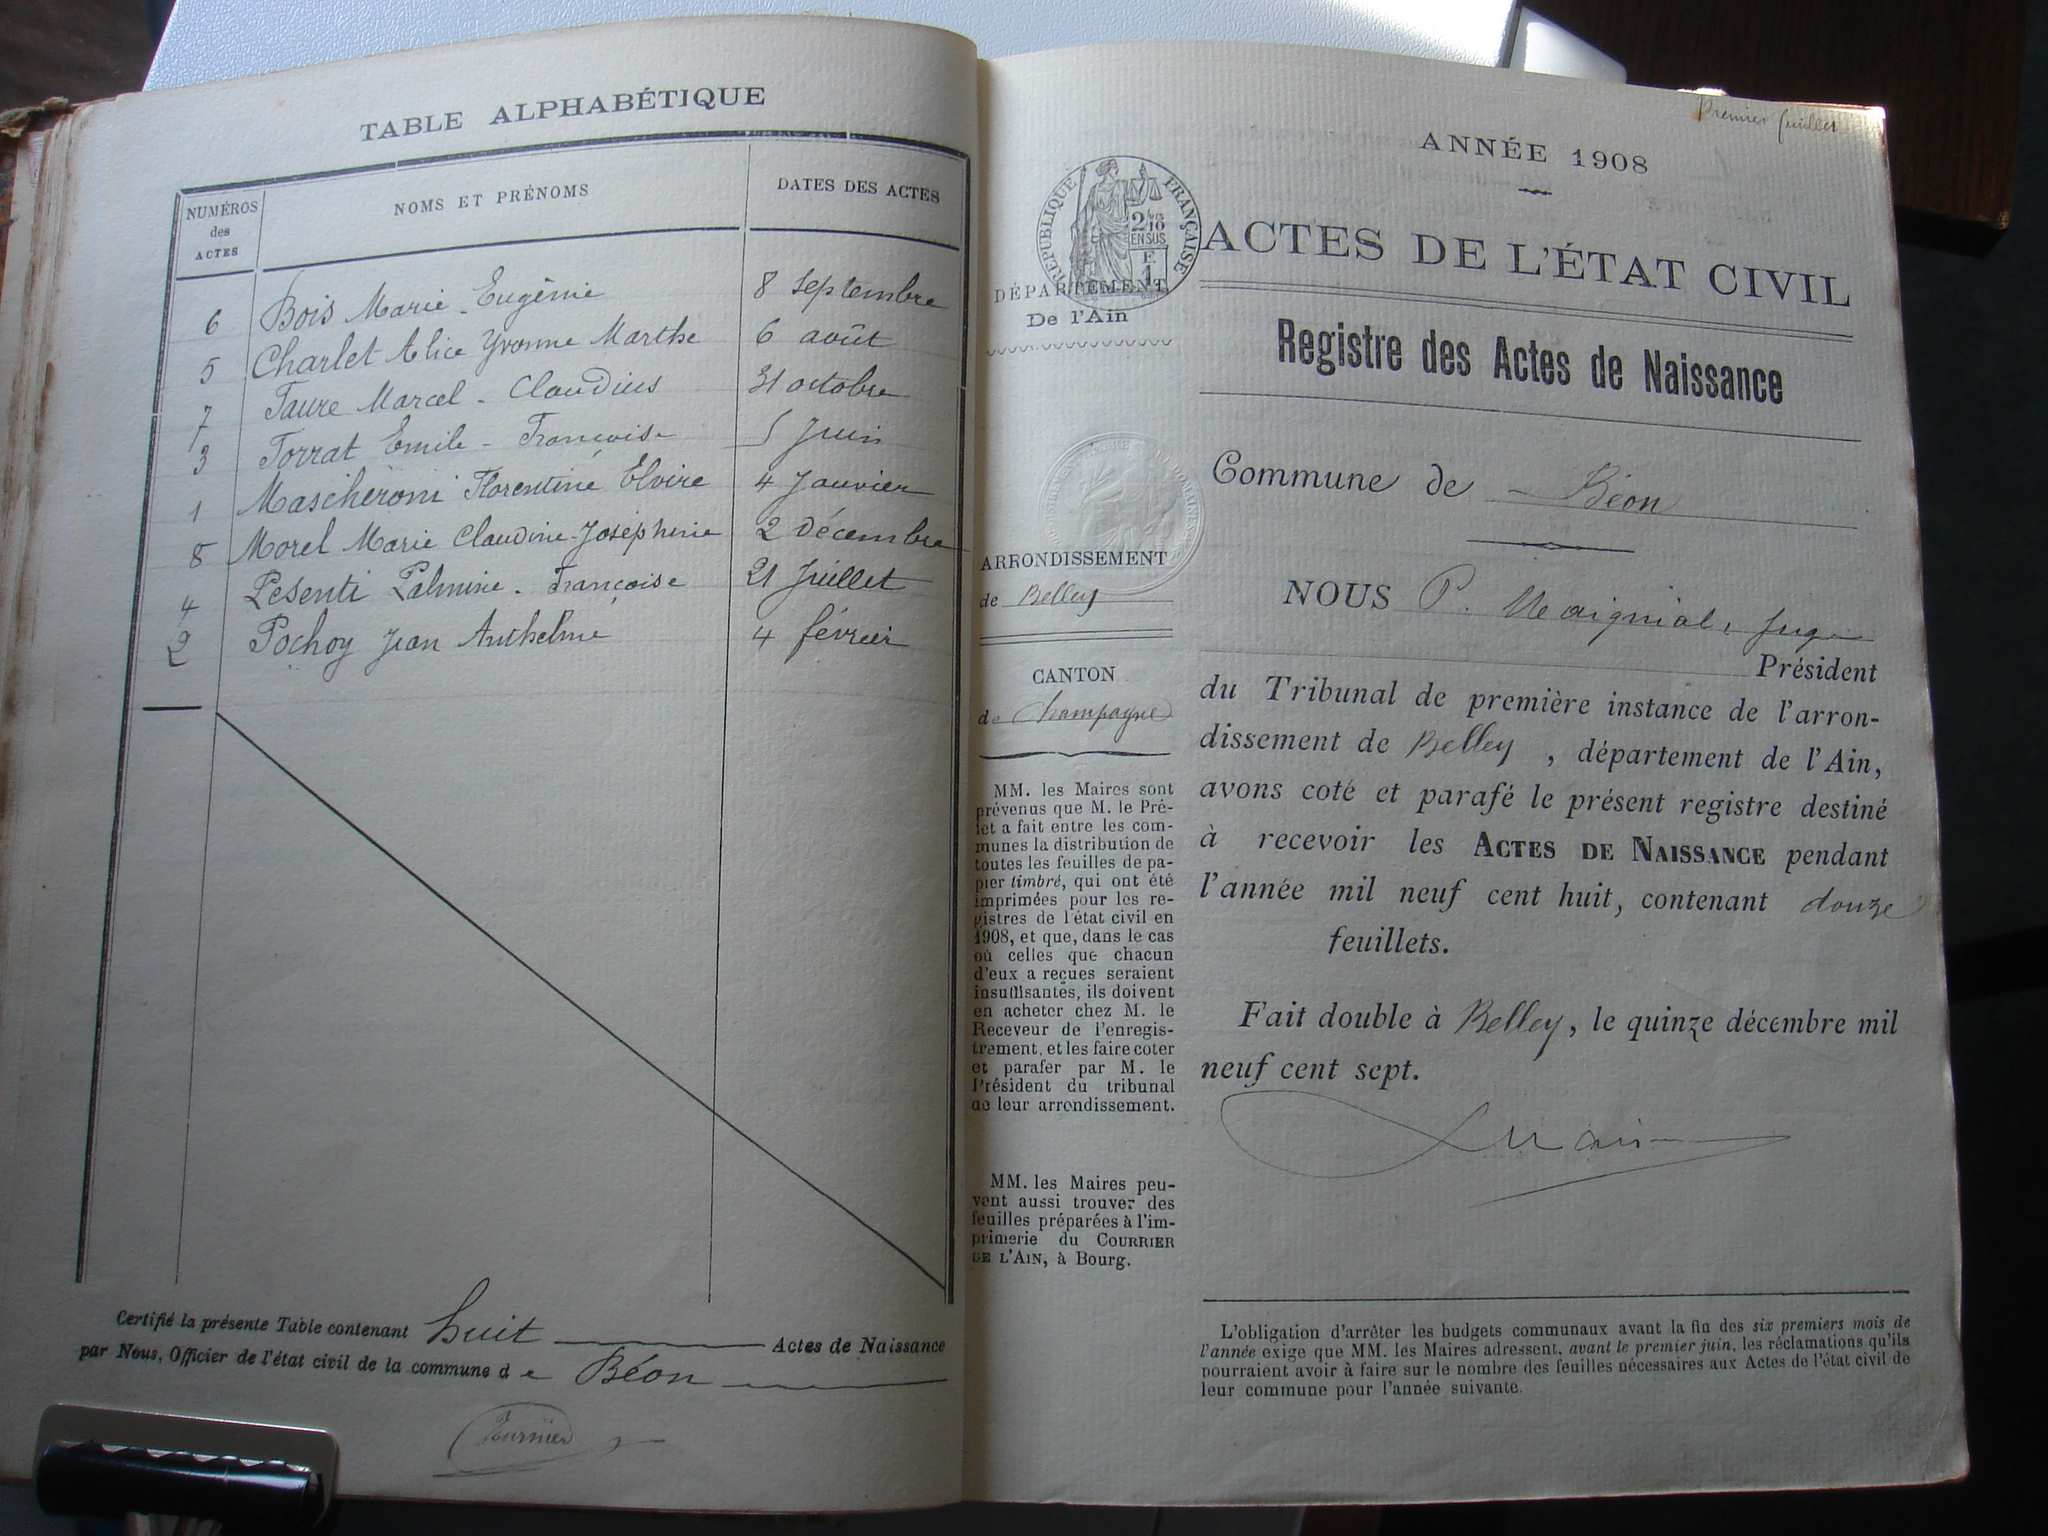 TABLE ALPHABÉTIQUE
NUMÉROS des ACTES NOMS ET PRÉNOMS DATES DES ACTES
6 Bois Marie-Eugénie 8 septembre
5 Charlet Alice Yvonne Marthe 6 août
7 Faure Marcel-Claudius 31 octobre
3 Forrat Emile-Françoise 5 Juin
1 Mascheroni Florentine Elvire 4 Janvier
8 Morel Marie Claudine-Joséphine 2 Décembre
4 Pesenti Palmine-Françoise 21 Juillet
2 Pochoy Jean Anthelme 4 février
Certifié la présente Table contenant huit Actes de Naissance
par Nous, Officier de l'état civil de la commune de Béon
Fournier
Premier feuillet
ANNÉE 1908
RÉPUBLIQUE FRANÇAISE
2/10
EN SUS
E
1
ACTES DE L'ÉTAT CIVIL
DÉPARTEMENT
De l'Ain
Registre des Actes de Naissance
Commune de Béon
ARRONDISSEMENT
de Belley
CANTON
de Champagne
MM. les Maires sont
prévenus que M. le Pré-
fet a fait entre les com-
munes la distribution de
toutes les feuilles de pa-
pier timbré, qui ont été
imprimées pour les re-
gistres de l'état civil en
1908, et que, dans le cas
où celles que chacun
d'eux a reçues seraient
insuffisantes, ils doivent
en acheter chez M. le
Receveur de l'enregis-
trement, et les faire coter
et parafer par M. le
Président du tribunal
de leur arrondissement.
MM. les Maires peu-
vent aussi trouver des
feuilles préparées à l'im-
primerie du COURRIER
DE L'AIN, à Bourg.
NOUS P. Maignial, Juge
Président
du Tribunal de première instance de l'arron-
dissement de Belley, département de l'Ain,
avons coté et parafé le présent registre destiné
à recevoir les ACTES DE NAISSANCE pendant
l'année mil neuf cent huit, contenant douze
feuillets.
Fait double à Belley, le quinze décembre mil
neuf cent sept.
L'obligation d'arrêter les budgets communaux avant la fin des six premiers mois de
l'année exige que MM. les Maires adressent, avant le premier juin, les réclamations qu'ils
pourraient avoir à faire sur le nombre des feuilles nécessaires aux Actes de l'état civil de
leur commune pour l'année suivante.